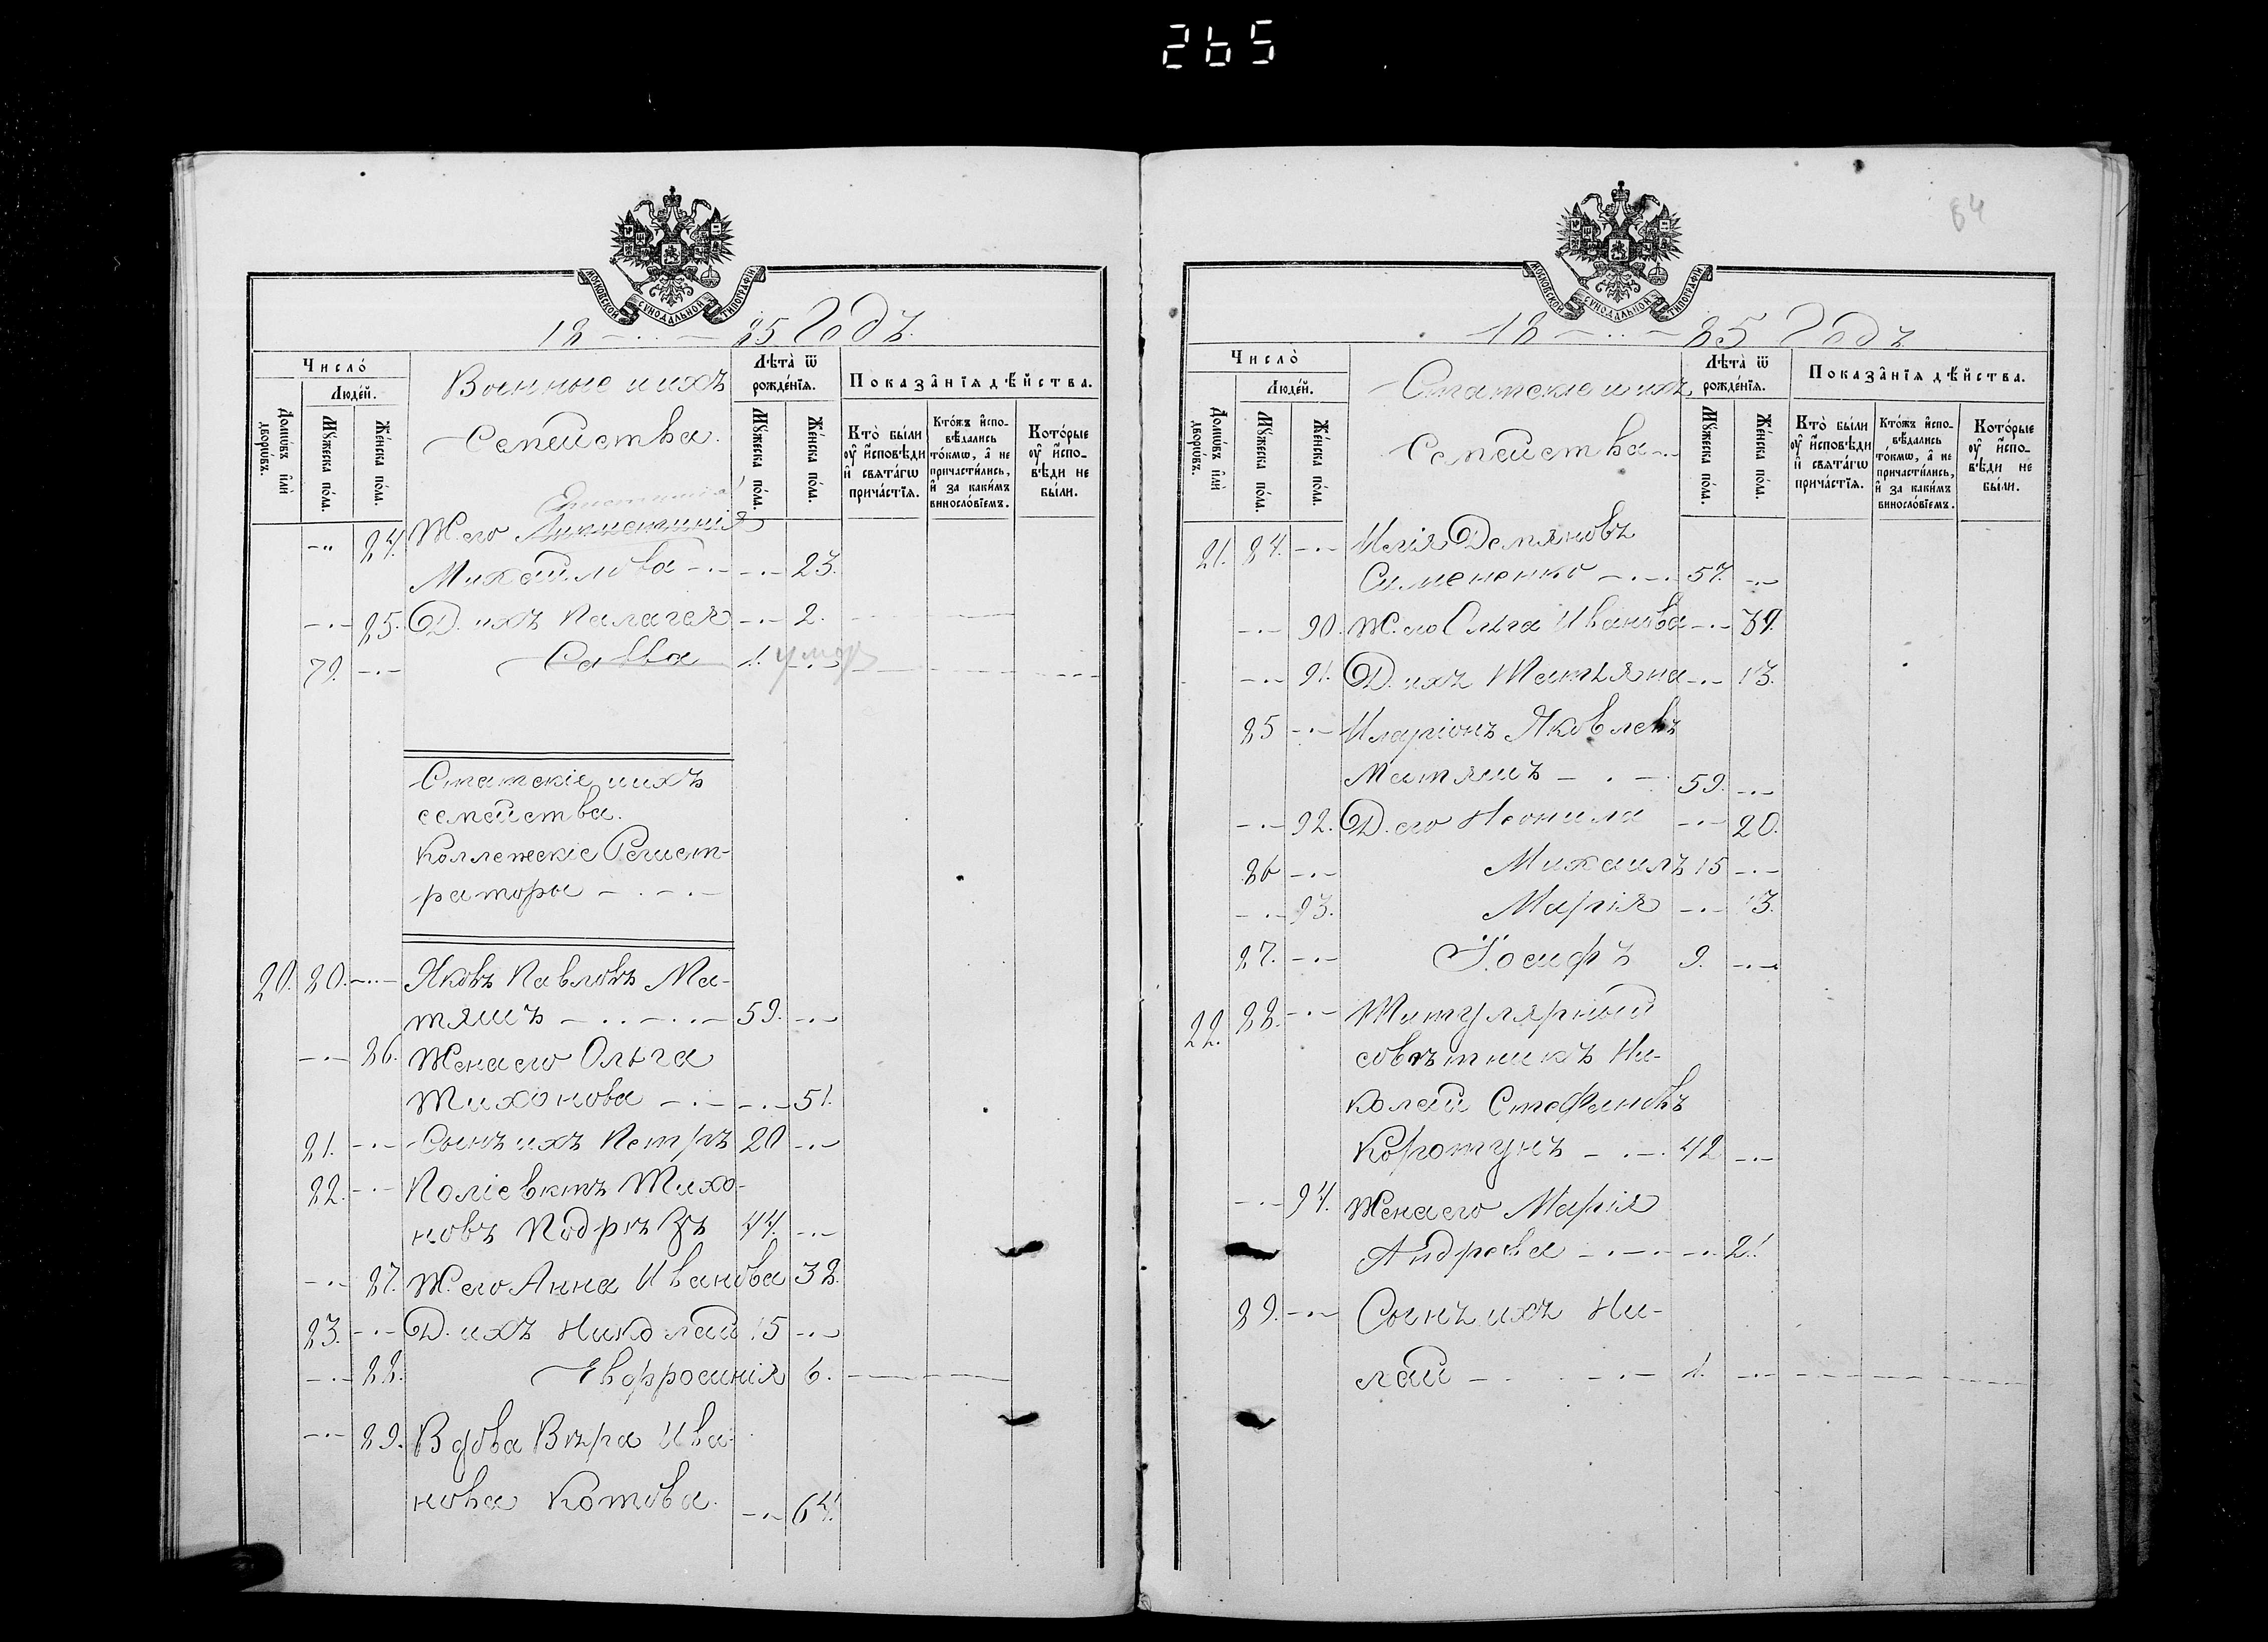 265
МОСКОВСКОЙ СУНОДАЛЬНОЙ ТИПОГРАФІИ
18 — 85 Годъ.
Число̀
Людéй.
Домѡ́въ и҆лѝ дворѡ́въ.
Мꙋ́жеска по́ла.
Же́нска по́ла.
Военные и ихъ
Семейства.
Лѣта̀ ѿ рожде́нїѧ.
Мꙋ́жеска по́ла.
Же́нска по́ла.
Показа̂нїѧ дѣ́йства.
Кто̀ бы́ли ᲂу҆ и҆́сповѣди и҆ свѧта́гѡ прича́стїѧ.
Кто́жъ и҆спо-вѣ́дались то́кмѡ, а҆ не причасти́лись, и҆ за каки́мъ виносло́вїемъ.
Кото́рые ᲂу҆ и҆́спо-вѣди не бы́ли.
24. Ж. его
Михайлова — 23.
25. Д. ихъ Палагея — 2.
79. Савва 1. умеръ
Статскіе и ихъ
семейства.
Коллежскіе Регист-
раторы
20. 20. Яковъ Павловъ Ма-
тяшъ 59.
26. Жена его Ольга
Тихонова 51.
21. Сынъ ихъ Петръ 20
22. Поліевктъ Тихо-
новъ Подрѣзъ 44.
27. Ж. его Анна Иванова 38.
23. Д. ихъ Николай 15
28. Евфросинія 6.
29. Вдова Вѣра Ива-
нова Котова. 64.
84
МОСКОВСКОЙ СУНОДАЛЬНОЙ ТИПОГРАФІИ
18 — 85 Годъ
Число̀
Людéй.
Домѡ́въ и҆лѝ дворѡ́въ.
Мꙋ́жеска по́ла.
Же́нска по́ла.
Статскіе и ихъ
Семейства
Лѣта̀ ѿ рожде́нїѧ.
Мꙋ́жеска по́ла.
Же́нска по́ла.
Показа̂нїѧ дѣ́йства.
Кто̀ бы́ли ᲂу҆ и҆́сповѣди и҆ свѧта́гѡ прича́стїѧ.
Кто́жъ и҆спо-вѣ́дались то́кмѡ, а҆ не причасти́лись, и҆ за каки́мъ виносло́вїемъ.
Кото́рые ᲂу҆ и҆́спо-вѣди не бы́ли.
21. 24. Илія Демяновъ
Симененко 57.
90. Ж. его Ольга Иванова 39.
91. Д. ихъ Татьяна 13.
25 Иларіонъ Яковлевъ
Матяшъ 59.
92. Д. его Неонила 20.
26 Михаилъ 15
93. Марія 13.
27. Іосифъ 9.
22. 28. Титулярный
совѣтникъ Ни-
колай Стефановъ
Коротунъ 42
94. Жена его Марія
Андреева 21
29. Сынъ ихъ Ни-
лай 1.